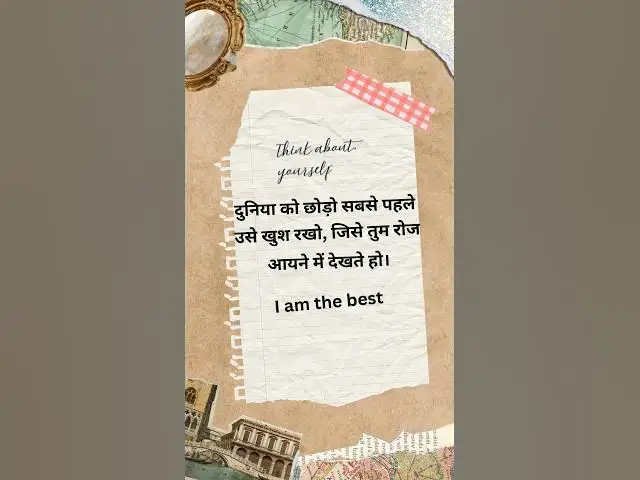 Think about
yourself
दुनिया को छोड़ो सबसे पहले
उसे खुश रखो, जिसे तुम रोज
आयने में देखते हो।
I am the best